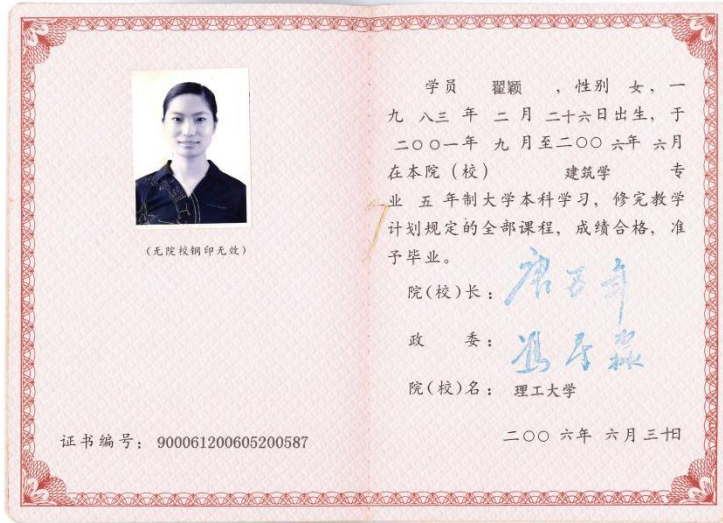 (无院校钢印无效)
证书编号: 900061200605200587
学员 翟颖 ,性别 女,一
九 八三 年 二 月 二十六日出生,于
二〇〇一年 九 月至二〇〇 六年 六月
在本院(校) 建筑学 专
业 五 年制大学本科学习,修完教学
计划规定的全部课程,成绩合格,准
予毕业。
院(校)长:
政 委:
院(校)名: 理工大学
二〇〇 六年 六月 三十日